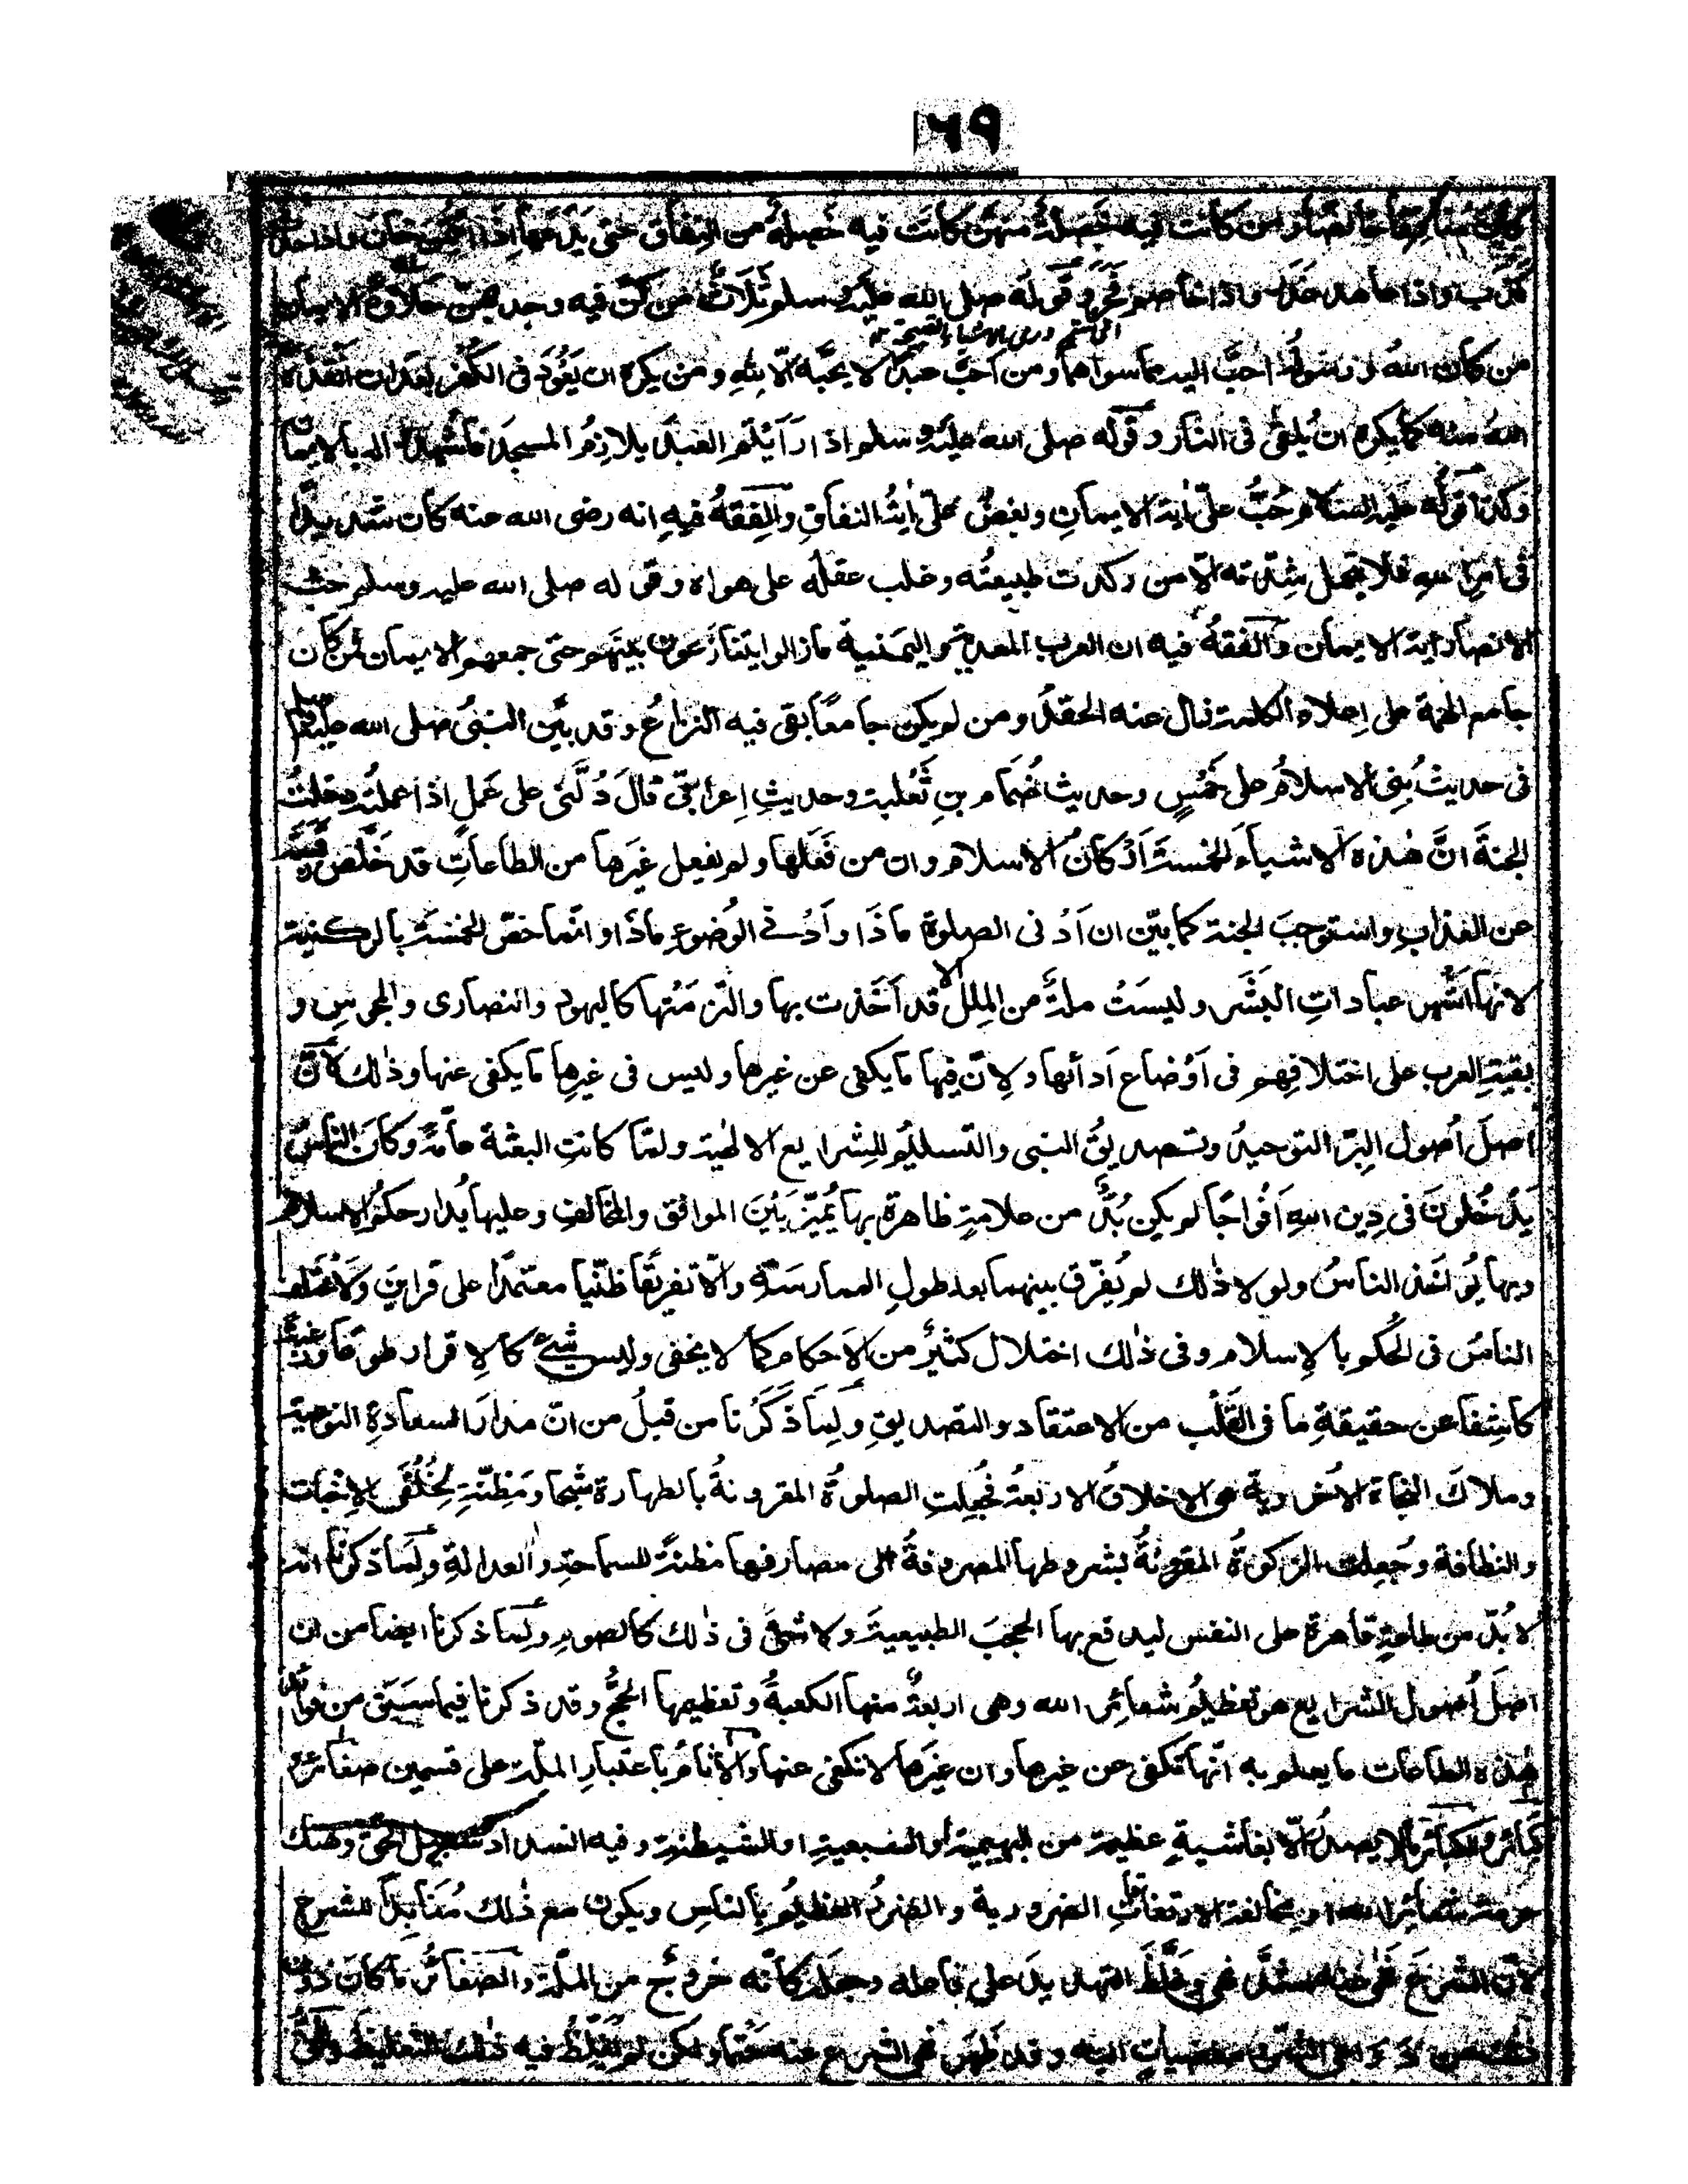 ١٦٩
كان منافقا خالصا ومن كانت فيه خَصلةٌ منهن كانت فيه خَصلةٌ من النِفاق حتى يَدَعَها إذا ائتمن خان واذا حدث
كذب واذا عاهد غدر واذا خاصم فجر وقوله صلى الله عليه وسلم ثلاثٌ من كنّ فيه وجد بهنّ حلاوة الايمان
من كان الله ورسوله احبَّ اليه مما سواهما ومن احبّ عبدا لا يحبّه الّا لله ومن يكره ان يعُودَ فى الكفر بعد ان انقذه
الله منه كما يكره ان يُلقى فى النار وقوله صلى الله عليه وسلم اذا رَأيتم العبدَ يلازِمُ المسجدَ فاشهدوا له بالايمان
وكذا قوله عليه السلام حُبُّ علىّ اٰية الايمانِ وبغضُ علىّ اٰيةُ النفاقِ والفِقهُ فيه انه رضى الله عنه كان شديدًا
فى امرِ اللهِ فلا يتحمل شِدّته الّا من ركدت طبيعتُه وغلب عقلُه على هواه وقوله صلى الله عليه وسلم حب
الانصار اٰية الايمان والفقهُ فيه ان العرب المعدية واليمنية مازالوا يتنازعون بينهم حتى جمعهم الايمان فمن كان
جامع الهمة على اِعلاء الكلمة زال عنه الحقدُ ومن لم يكن جامعًا بقى فيه النزاعُ وقد بيّن النبىُّ صلى الله عليه وسلم
فى حديث بُنى الاسلامُ على خمسٍ وحديث ضُمام بنِ ثَعْلبة وحديثِ اعرابىّ قال دُلَّنى على عَملٍ اذا عملتُه دخلتُ
الجنةَ انَّ هٰذه الاشياءَ الخمسة اَركانُ الاسلام وان من فَعَلها ولم يفعل غيَرها من الطاعاتِ قد خلّص رقبته
عن العذابِ واستوجبَ الجنة كما بيّن ان اَدْنى الصلوة ماذا واَدْنى الوُضوءِ ماذا وانّما خصّ الخمسة بالركنية
لانها اَشْهر عباداتِ البَشَر وليسَتْ ملةٌ من المِللِ الا قد اَخَذت بها والتزمَتْها كاليهود والنصارى والمجوسِ و
بقيةِ العرب على اختلافِهم فى اَوْضاع اَدائها ولِانّ فيها ما يكفى عن غيرها وليس فى غيرِها ما يكفى عنها وذٰلك لانّ
اصلَ اُصول البِرّ التوحيدُ وتصديقُ النبى والتسليمُ للشرايع الالٰهية ولمّا كانتِ البعثة عامّةً وكانَ الناسُ
يَدْخُلونَ فى دِين اللهِ اَفْواجًا لم يكن بُدٌّ من علامةٍ ظاهرةٍ بها يُميّزُ بَيْنَ الموافق والمخالفِ وعليها يُدار حكمُ الاسلام
وبها يُواخَذ الناسُ ولولا ذٰلك لم يُفرّق بينهما بعد طولِ الممارسَةِ والّا تفريقًا ظنّيا معتمِدًا على قراينَ ولَاختَلف
الناسُ فى الحُكم بالاِسلام وفى ذٰلك اختلال كثيرٌ من الاَحكام كما لا يخفى وليس شىءٌ كالاِقرار طوعًا ورغبةً
كاشِفًا عن حقيقةِ ما فى القَلْب من الاعتقاد والتصديقِ ولِما ذَكَرْنا من قبلُ من انّ مدارَ السعادةِ النوعية
وملاكَ النجاة الاُخروية هى الاخلاقُ الاربعةُ فجُعِلتِ الصلوةُ المقرونةُ بالطهارة شَبَحا ومَظِنّةً لِخُلُقَى الاِخبات
والنظافة وجُعِلت الزكوةُ المقرونةُ بشروطها المصروفةُ الى مصارفها مظنةً للسماحةِ والعدالةِ ولِما ذكرنا انه
لا بُدّ من طاعةٍ قاهرة على النفس ليدفع بها الحجبَ الطبيعيةَ ولا شىْءَ فى ذٰلك كالصوم ولِما ذكرنا ايضا من ان
اصلَ اُصول الشرايع هو تعظيمُ شعائرِ الله وهى اربعةٌ منها الكعبةُ وتعظيمها الحجُّ وقد ذكرنا فيما سَبَق من فوائد
هٰذه الطاعات ما يعلم به انّها تكفى عن غيرها وان غيَرها لا تكفى عنها والاٰثامُ باعتبارِ الملّة على قسمين صغائر و
كبائر والكبائر ما لا يصدرُ الّا بغاشيةٍ عظيمة من البهيميةِ او السبعيةِ او الشيطنةِ وفيه انسداد سبيلِ الحق وهتك
حرمة شعائر الله او مخالفة الارتفاقاتِ الضرورية والضررُ العظيمُ بالناسِ ويكون مع ذٰلك مُنابِذًا للشرع
لانّ الشرعَ نهى عنه اشدَّ نهىٍ وغلَّظَ التهديدَ على فاعله وجعله كانّه خروجٌ من الملّة والصغائرُ ما كان دون
ذٰلك من دواعى الشرّ ومفضياتٍ اليه وقد ظهَر نهى الشرع عنه حَتْما ولكن لم يُغلِّظْ فيه ذٰلك التغليظَ والحقّ